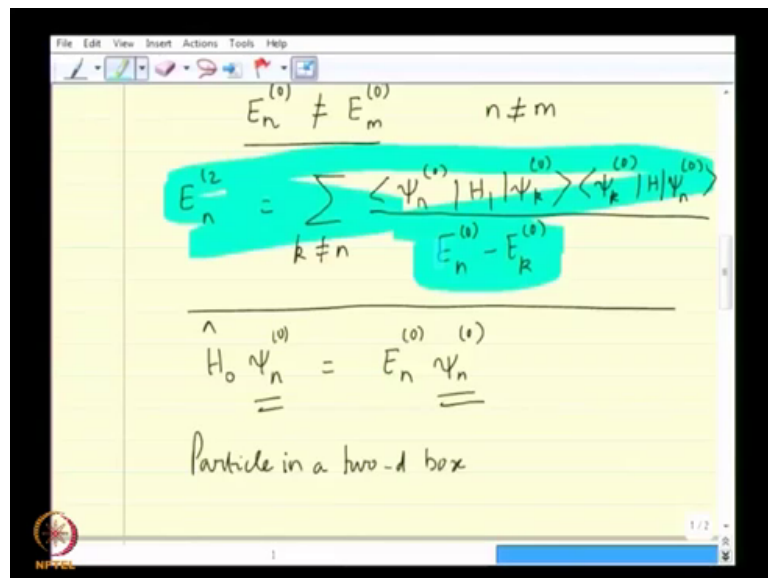 File Edit View Insert Actions Tools Help
E_n^(0) ≠ E_m^(0) n ≠ m
E_n^(2 = ∑_{k≠n} <ψ_n^(0) | H_1 | ψ_k^(0)> <ψ_k^(0) | H | ψ_n^(0)> / E_n^(0) - E_k^(0)
Ĥ_0 ψ_n^(0) = E_n^(0) ψ_n^(0)
Particle in a two-d box
1/2
1
NPTEL